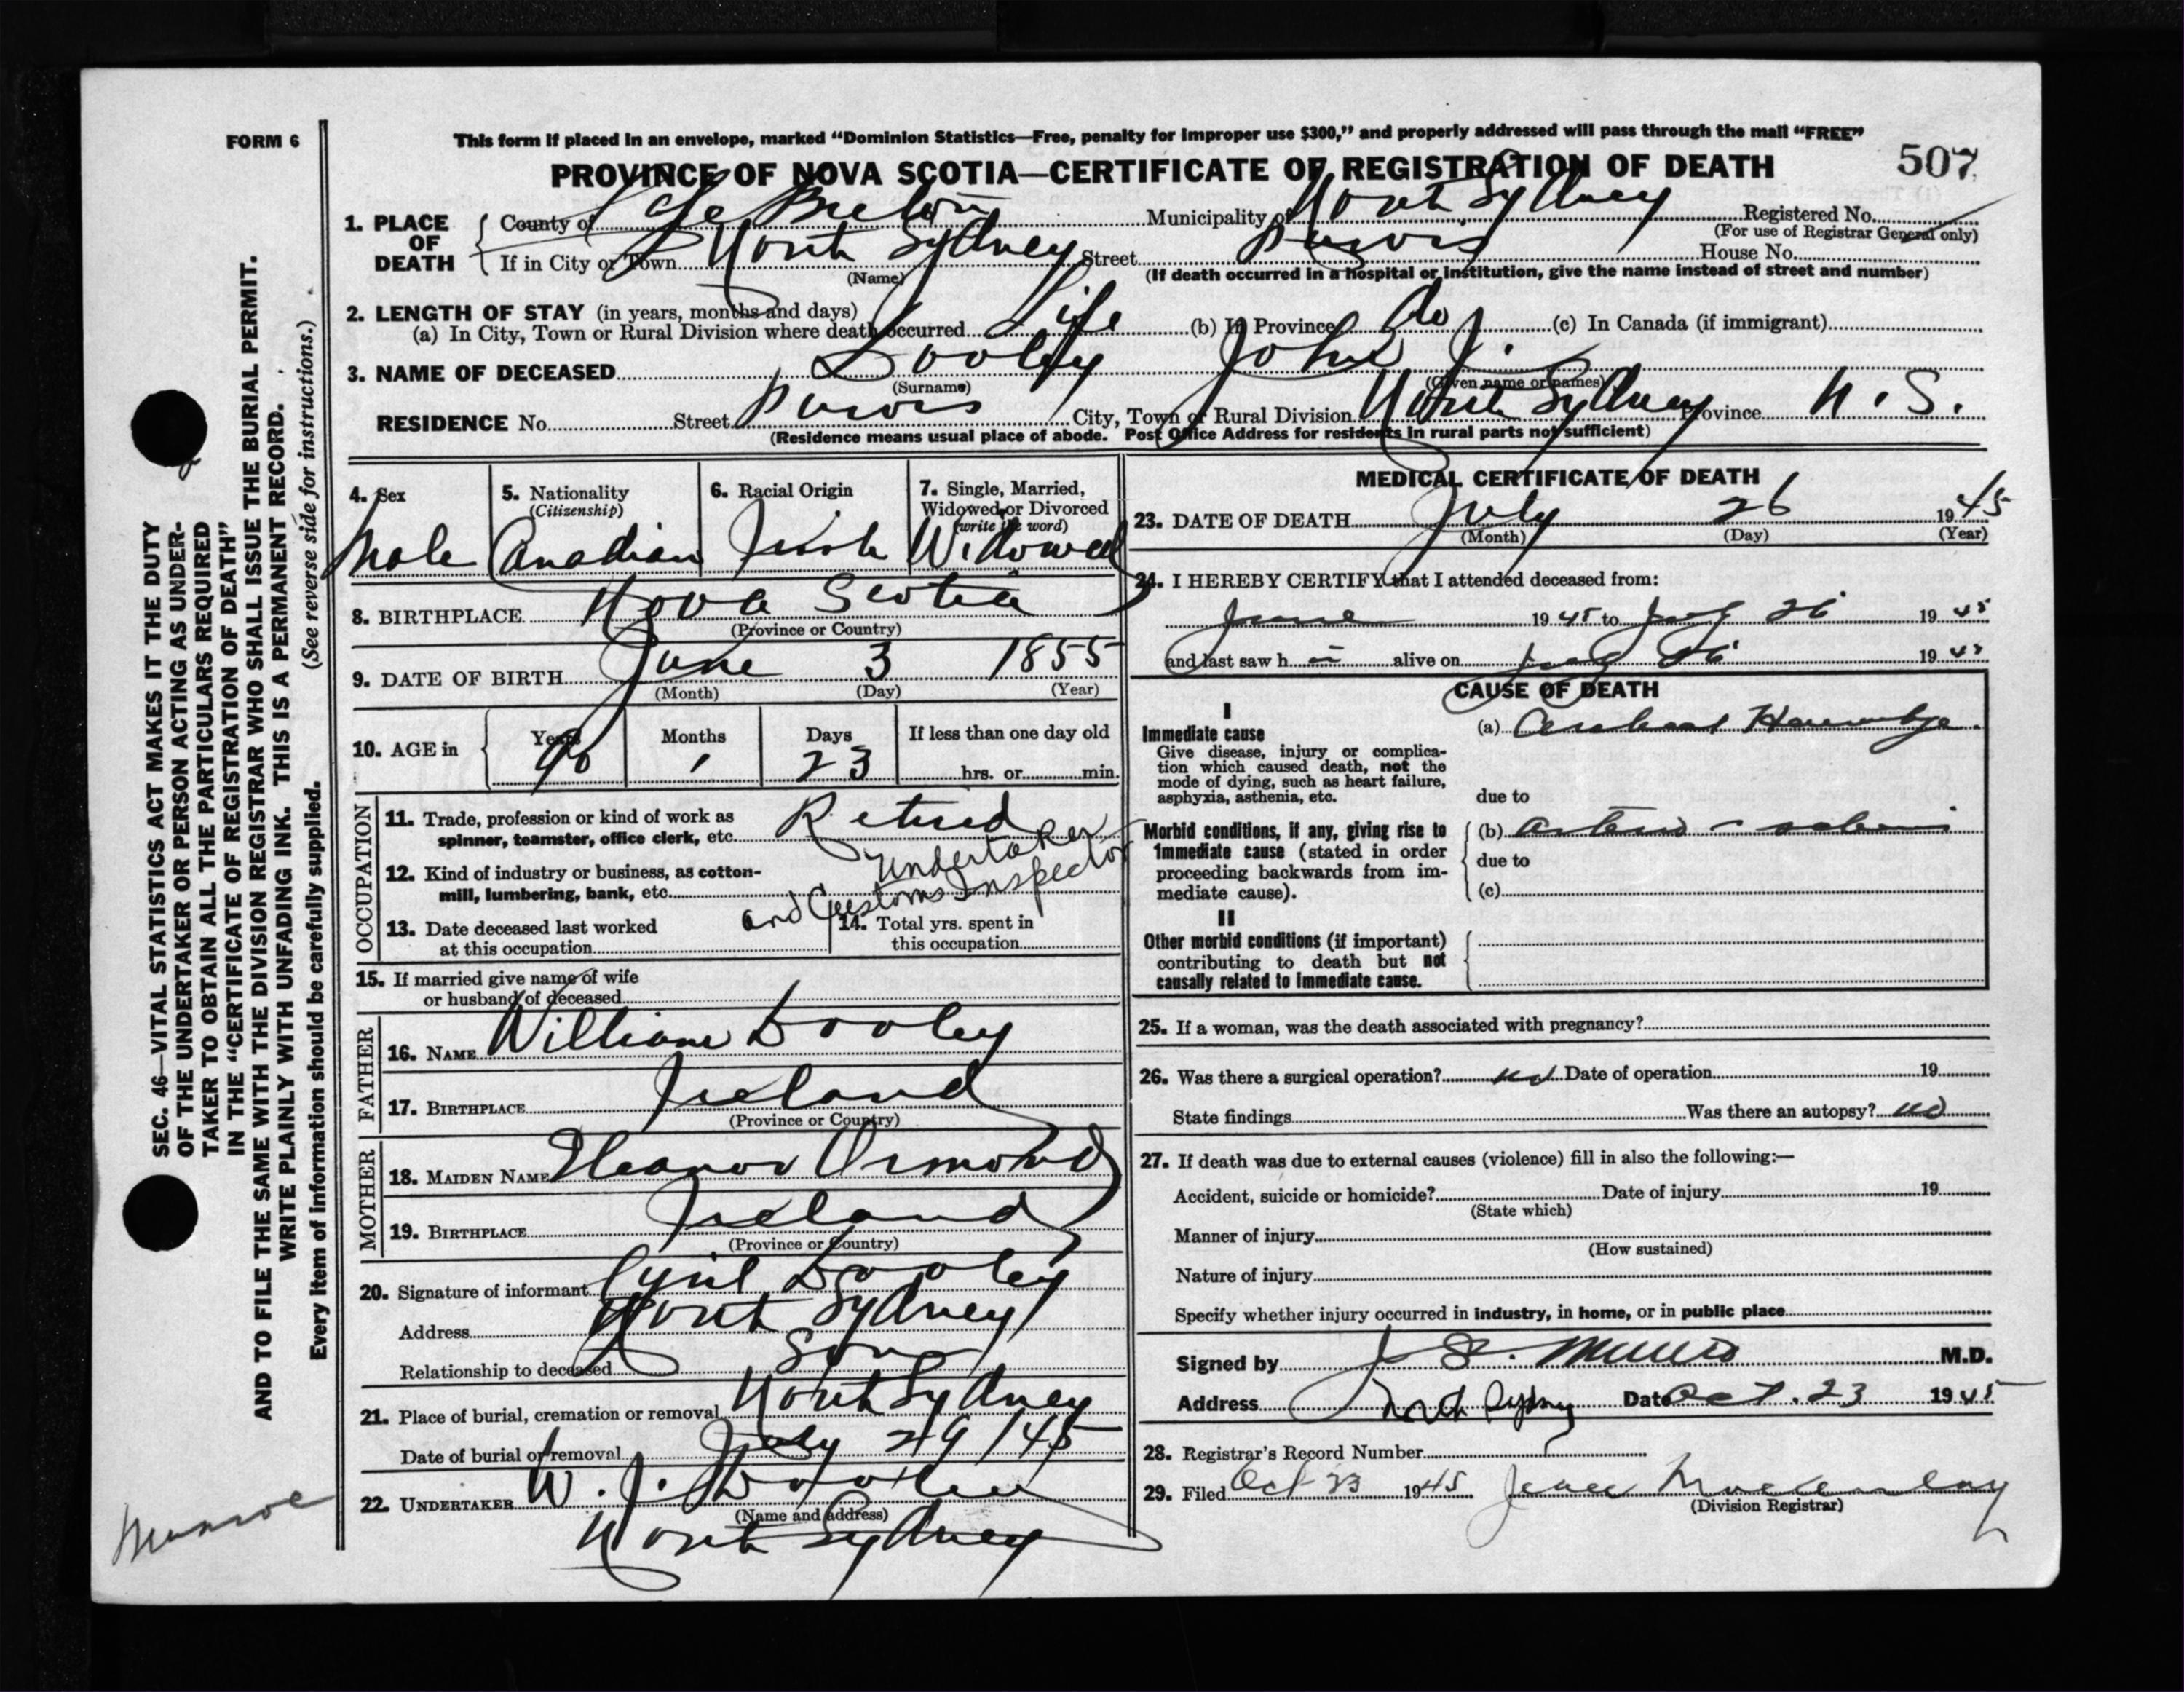 FORM 6
This form if placed in an envelope, marked "Dominion Statistics—Free, penalty for improper use $300," and properly addressed will pass through the mail "FREE"
PROVINCE OF NOVA SCOTIA—CERTIFICATE OF REGISTRATION OF DEATH
507
1. PLACE OF DEATH
County of Cape Breton Municipality of North Sydney Registered No.
(For use of Registrar General only)
If in City or Town North Sydney Street Purvis House No.
(Name)
(If death occurred in a hospital or institution, give the name instead of street and number)
2. LENGTH OF STAY (in years, months and days)
(a) In City, Town or Rural Division where death occurred Life (b) In Province do (c) In Canada (if immigrant)
3. NAME OF DECEASED Dooley John J.
(Surname) (Given name or names)
RESIDENCE No. Street Purvis City, Town or Rural Division North Sydney Province N.S.
(Residence means usual place of abode. Post Office Address for residents in rural parts not sufficient)
4. Sex
Male
5. Nationality
(Citizenship)
Canadian
6. Racial Origin
Irish
7. Single, Married,
Widowed or Divorced
(write the word)
Widowed
8. BIRTHPLACE Nova Scotia
(Province or Country)
9. DATE OF BIRTH June 3 1855
(Month) (Day) (Year)
10. AGE in
Years Months Days If less than one day old
90 1 23 hrs. or min.
OCCUPATION
11. Trade, profession or kind of work as
spinner, teamster, office clerk, etc. Retired
undertaker
12. Kind of industry or business, as cotton-
mill, lumbering, bank, etc.
and Customs Inspector
13. Date deceased last worked
at this occupation
14. Total yrs. spent in
this occupation
15. If married give name of wife
or husband of deceased
FATHER
16. NAME William Dooley
17. BIRTHPLACE Ireland
(Province or Country)
MOTHER
18. MAIDEN NAME Eleanor Ormond
19. BIRTHPLACE Ireland
(Province or Country)
20. Signature of informant Cyril Dooley
Address North Sydney
Relationship to deceased Son
21. Place of burial, cremation or removal North Sydney
Date of burial or removal July 29/45
22. UNDERTAKER W. J. Dooley
(Name and address)
North Sydney
MEDICAL CERTIFICATE OF DEATH
23. DATE OF DEATH July 26 1945
(Month) (Day) (Year)
24. I HEREBY CERTIFY that I attended deceased from:
June 1945 to July 26 1945
and last saw h alive on July 26 1945
CAUSE OF DEATH
I
Immediate cause
Give disease, injury or complica-
tion which caused death, not the
mode of dying, such as heart failure,
asphyxia, asthenia, etc.
(a)
due to
Morbid conditions, if any, giving rise to
immediate cause (stated in order
proceeding backwards from im-
mediate cause).
(b)
due to
(c)
II
Other morbid conditions (if important)
contributing to death but not
causally related to immediate cause.
25. If a woman, was the death associated with pregnancy?
26. Was there a surgical operation? no Date of operation 19
State findings Was there an autopsy? no
27. If death was due to external causes (violence) fill in also the following:—
Accident, suicide or homicide? Date of injury 19
(State which)
Manner of injury
(How sustained)
Nature of injury
Specify whether injury occurred in industry, in home, or in public place
Signed by J S. Munro M.D.
Address North Sydney Date Oct. 23 1945
28. Registrar's Record Number
29. Filed Oct 23 1945
(Division Registrar)
SEC. 46—VITAL STATISTICS ACT MAKES IT THE DUTY
OF THE UNDERTAKER OR PERSON ACTING AS UNDER-
TAKER TO OBTAIN ALL THE PARTICULARS REQUIRED
IN THE "CERTIFICATE OF REGISTRATION OF DEATH"
AND TO FILE THE SAME WITH THE DIVISION REGISTRAR WHO SHALL ISSUE THE BURIAL PERMIT.
WRITE PLAINLY WITH UNFADING INK. THIS IS A PERMANENT RECORD.
Every item of information should be carefully supplied. (See reverse side for instructions.)
Munroe